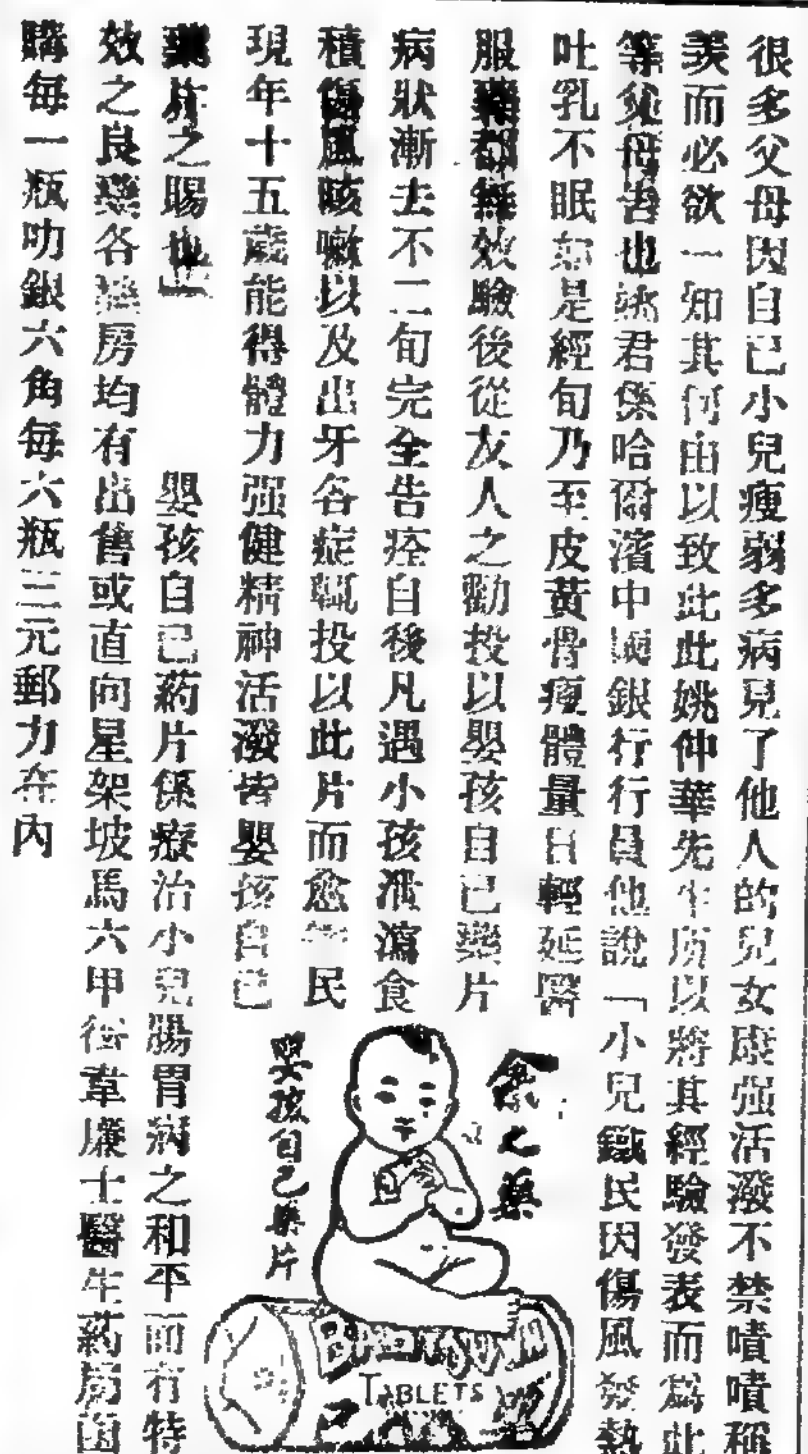 很多父母因自己小兒瘦弱多病見了他人的兒女康强活潑不禁嘖嘖稱
羨而必欲一知其何由以致此此姚仲華先生所以將其經驗發表而爲此
等父母吿也姚君係哈爾濱中國銀行行員他說「小兒鐵民因傷風發熱
吐乳不眠如是經旬乃至皮黃骨瘦體量日輕延醫
服藥都無效驗後從友人之勸投以嬰孩自己藥片
病狀漸去不二旬完全告痊自後凡遇小孩泄瀉食
積傷風咳嗽以及出牙各症輒投以此片而愈民
現年十五歲能得體力强健精神活潑皆嬰孩自己
藥片之賜也」
嬰孩自己葯片係療治小兒腸胃病之和平而有特
效之良藥各藥房均有出售或直向星架坡馬六甲街韋廉士醫生葯局函
購每一瓶叻銀六角每六瓶三元郵力在內
余之藥
嬰孩自己藥片
TABLETS